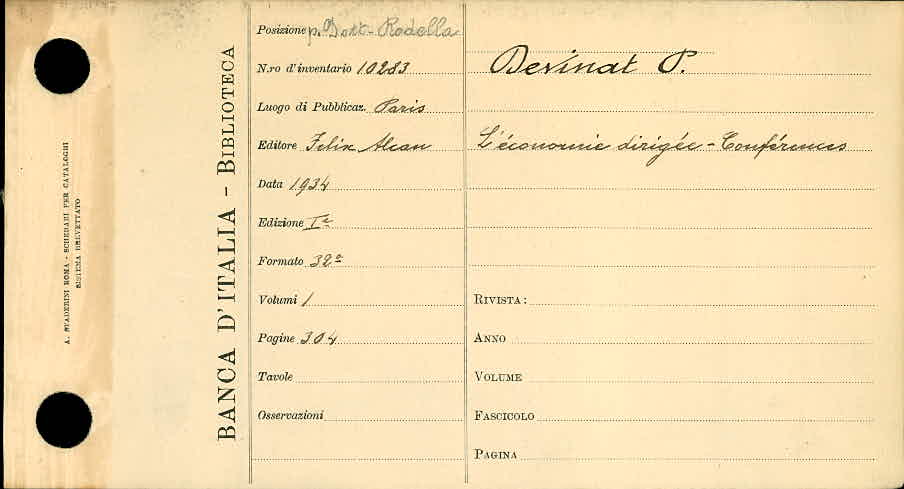 A. STADERINI ROMA - SCHEDARI PER CATALOGHI
SISTEMA BREVETTATO
BANCA D'ITALIA - BIBLIOTECA
Posizione p. Dott. Rodella
N.ro d'inventario 10283
Luogo di Pubblicaz. Paris
Editore Felix Alcan
Data 1934
Edizione Iª
Formato 32º
Volumi 1
Pagine 304
Tavole
Osservazioni
Devinat P.
L'économie dirigée - Conférences
RIVISTA:
ANNO
VOLUME
FASCICOLO
PAGINA